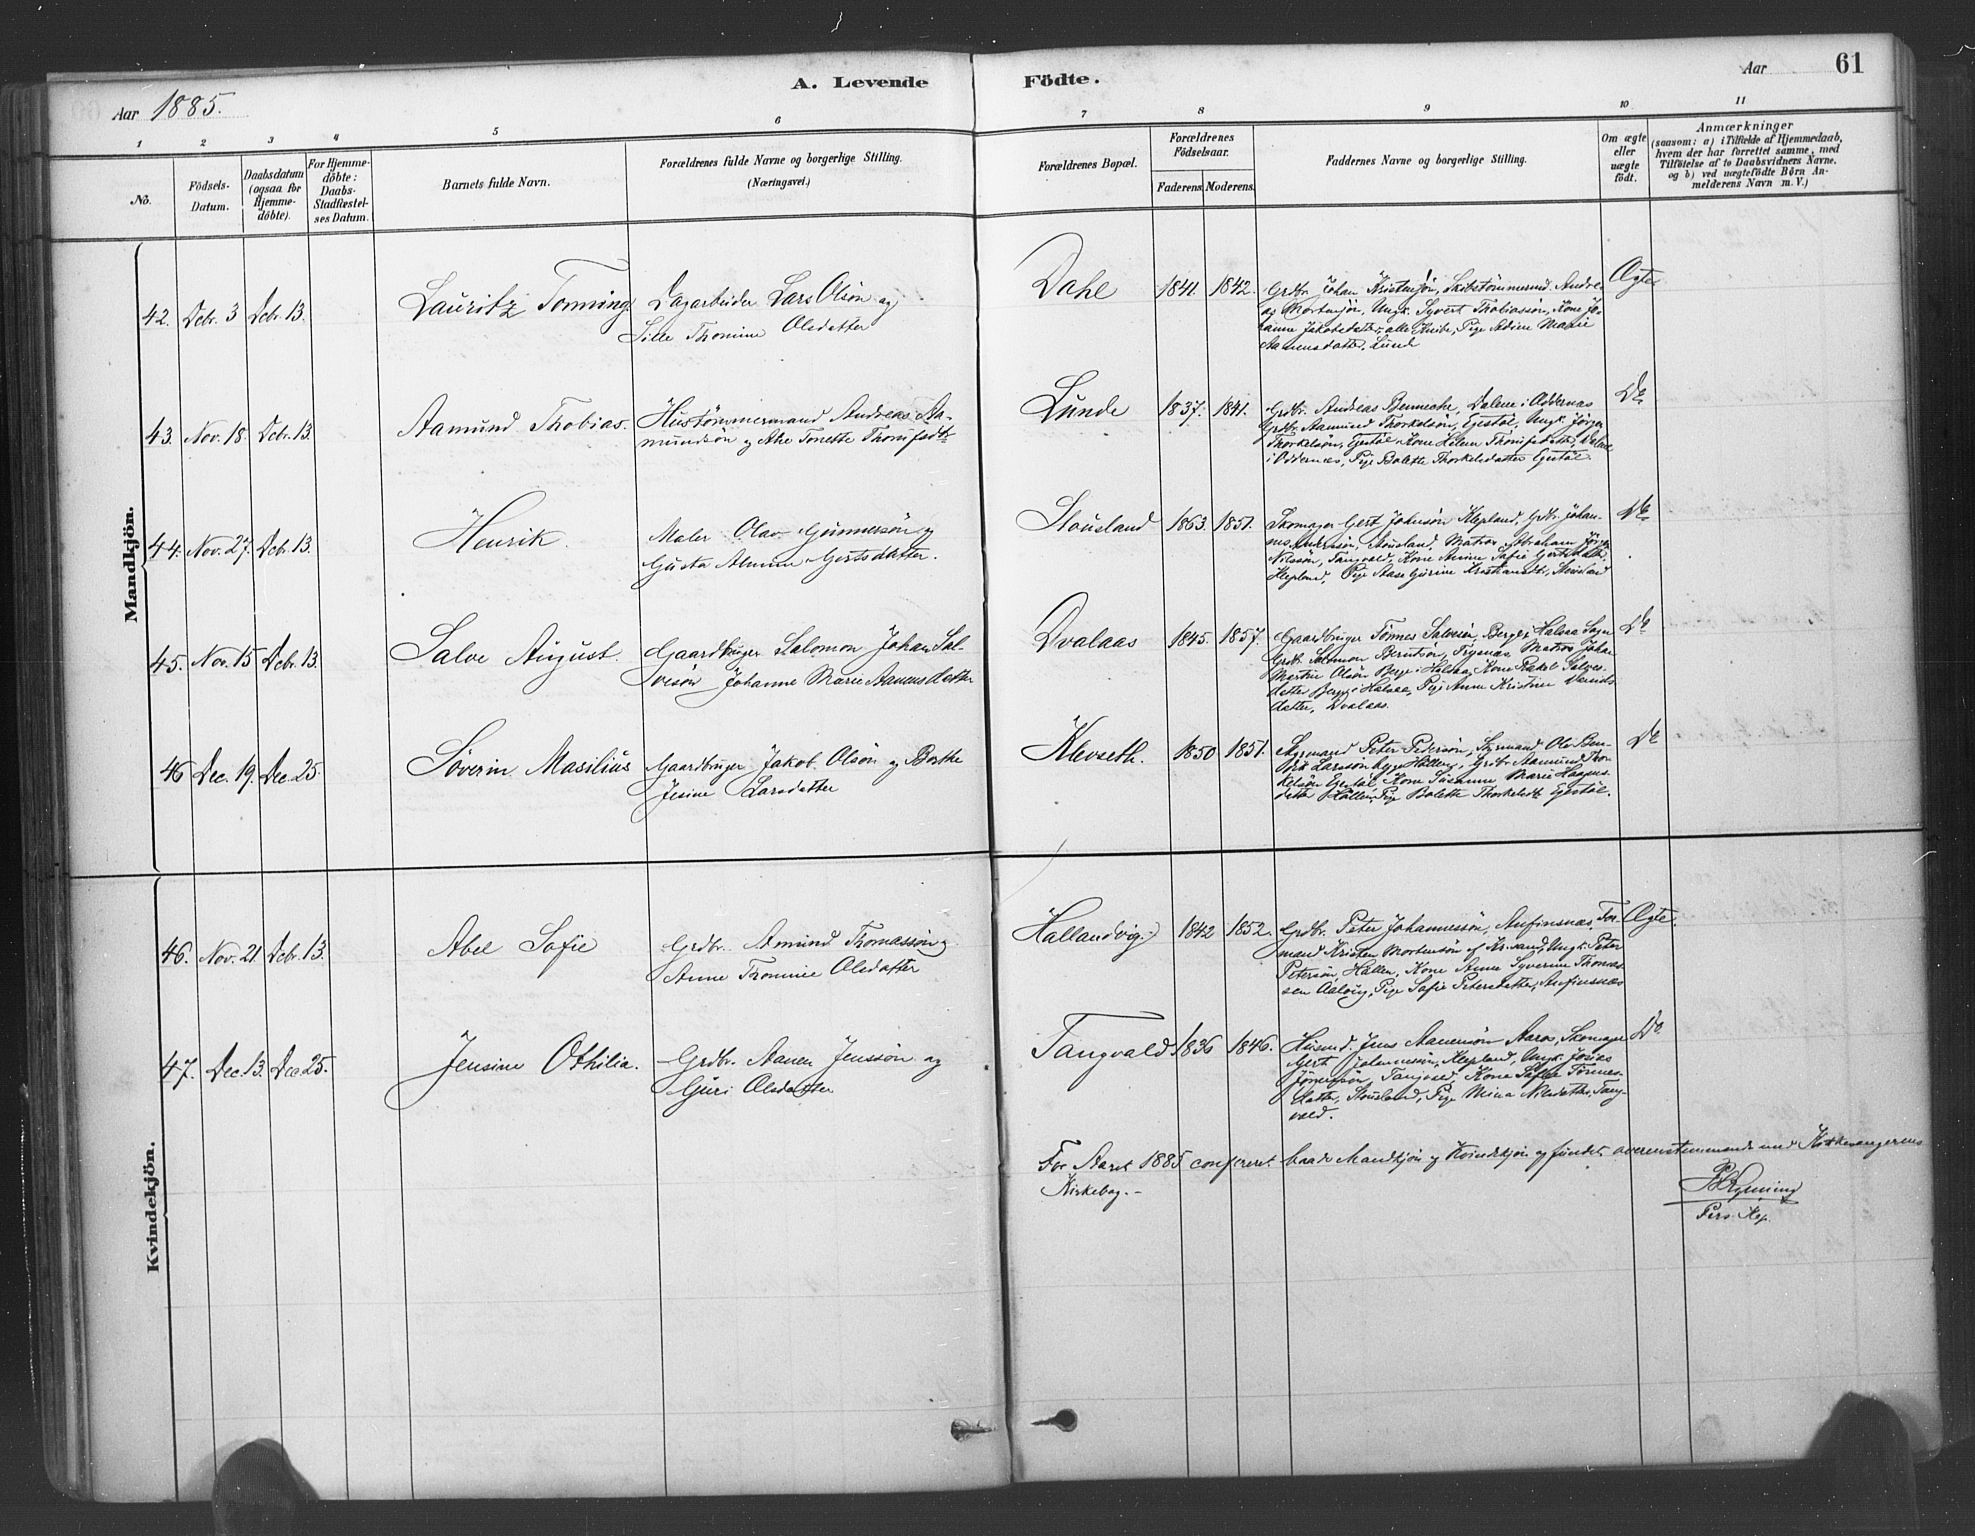 A. Levende Födte.
Aar 1885.
Aar 61
1 2 3 4 5 6 7 8 9 10 11
No.
Födsels-Datum.
Daabsdatum (ogsaa for Hjemme-döbte).
For Hjemme-döbte: Daabs-Stadfæstel-ses Datum.
Barnets fulde Navn.
Forældrenes fulde Navne og borgerlige Stilling. (Næringsvei.)
Forældrenes Bopæl.
Forældrenes Födselsaar.
Faderens. Moderens.
Faddernes Navne og borgerlige Stilling.
Om ægte eller uægte födt.
Anmærkninger
(saasom: a) i Tilfælde af Hjemmedaab, hvem der har forrettet samme, med Tilföielse af to Daabsvidners Navne, og b) ved uægtefödte Börn An-melderens Navn m. V.)
Mandkjön.
42. Debr. 3 Debr. 13. Lauritz Tonning Dagarbeider Lars Olsön og
Sille Thomine Olsdatter
Dahl 1841. 1842. Grdbr. Johan Kristensön, Skibstömmermd. Andre-
as Mortensön, Ungk. Syvert Thobiassön, Kone Jo-
hanne Jakobsdatter, alle Knibe, Pige Sedine Marie
Aanensdatter, Lunde
Ægte
43. Nov. 18. Debr. 13. Aamund Thobias. Hustömmermand Andreas Aa-
mundsön og Ane Tonette Thomasdtr
Lunde 1837. 1841. Grdbr. Andreas Benneche, Dalene i Oddernæs
Grdbr. Aamund Thorkelsön, Egestöl, Ungk. Jörgen
Thorkelsön, Egestöl, Kone Helene Thomasdatter, Dalene
i Oddernæs, Pige Bolette Thorkelsdatter Egestöl.
Do
44. Nov. 27. Debr. 13. Henrik. Maler Olav Gunnersön og
Gusta Amine Gertsdatter.
Stousland 1863. 1851. Skomager Gert Johnsön Klepland, Grdbr. Johan-
nes Andersön, Stousland, Matros Abraham Jörgen
Nilssön, Tangvald, Kone Anne Sofie Gertsdatter
Klepland, Pige Aase Gurine Kristiansdtr, Stousland
Do
45. Nov. 15 Debr. 13. Salve August. Gaardbruger Salomon Johan Sal-
vesön Johanne Marie Aanensdatter
Dvalaas 1845. 1857. Gaardbruger Tönnes Salvesön, Berge i Halsaa Sogn
Grdbr. Salomon Berntsön, Trysnæs, Matros Johan
Martin Olsön Berge i Halsaa, Kone Rakel Salves-
datter Berge i Halsaa, Pige Anne Kristine Daniels
datter, Dvalaas.
Do
46 Dec. 19. Dec. 25. Söverin Masilius Gaardbruger Jakob Olsön og Borthe
Jesine Larsdatter
Klevseth. 1850 1851. Styrmand Peter Pedersön, Styrmand Ole Ben-
dik Larssön begge Hallen, Grdbr. Aamund Thor-
kelsön Egestöl, Kone Susanne Marie Haagens-
datter Hallen, Pige Bolette Thorkelsdtr Egestöl.
Do
Kvindekjön.
46. Nov. 21. Debr. 13. Abel Sofie Grdbr. Amund Thomassön og
Anne Thomine Olsdatter
Hallandvig. 1842 1852. Grdbr. Peter Johannessön, Anfinsnæs, For-
mand Kristen Mortensön af Kr.sand, Ungk. Peter
Petersön, Hallen, Kone Anne Syverine Thomas-
sen Aaloug, Pige Sofie Petersdatter, Anfinsnæs
Ægte.
47. Dec. 13. Dec. 25. Jensine Othilia. Grdbr. Aanen Jenssön og
Guri Olsdatter
Tangvald 1836 1846. Husmd. Jens Aanensön Aaros, Skomager
Gert Johannessön, Klepland, Ungk. Josias
Jörensön, Tangvald, Kone Sofie Tönnes-
datter, Stousland, Pige Mina Nilsdatter, Tang-
vald.
Do.
For Aaret 1885 confereret baade Mandkjön og Kvindekjön og fundet overensstemmende med Kirkesangerens
Kirkebog. -
Pers. Kap.